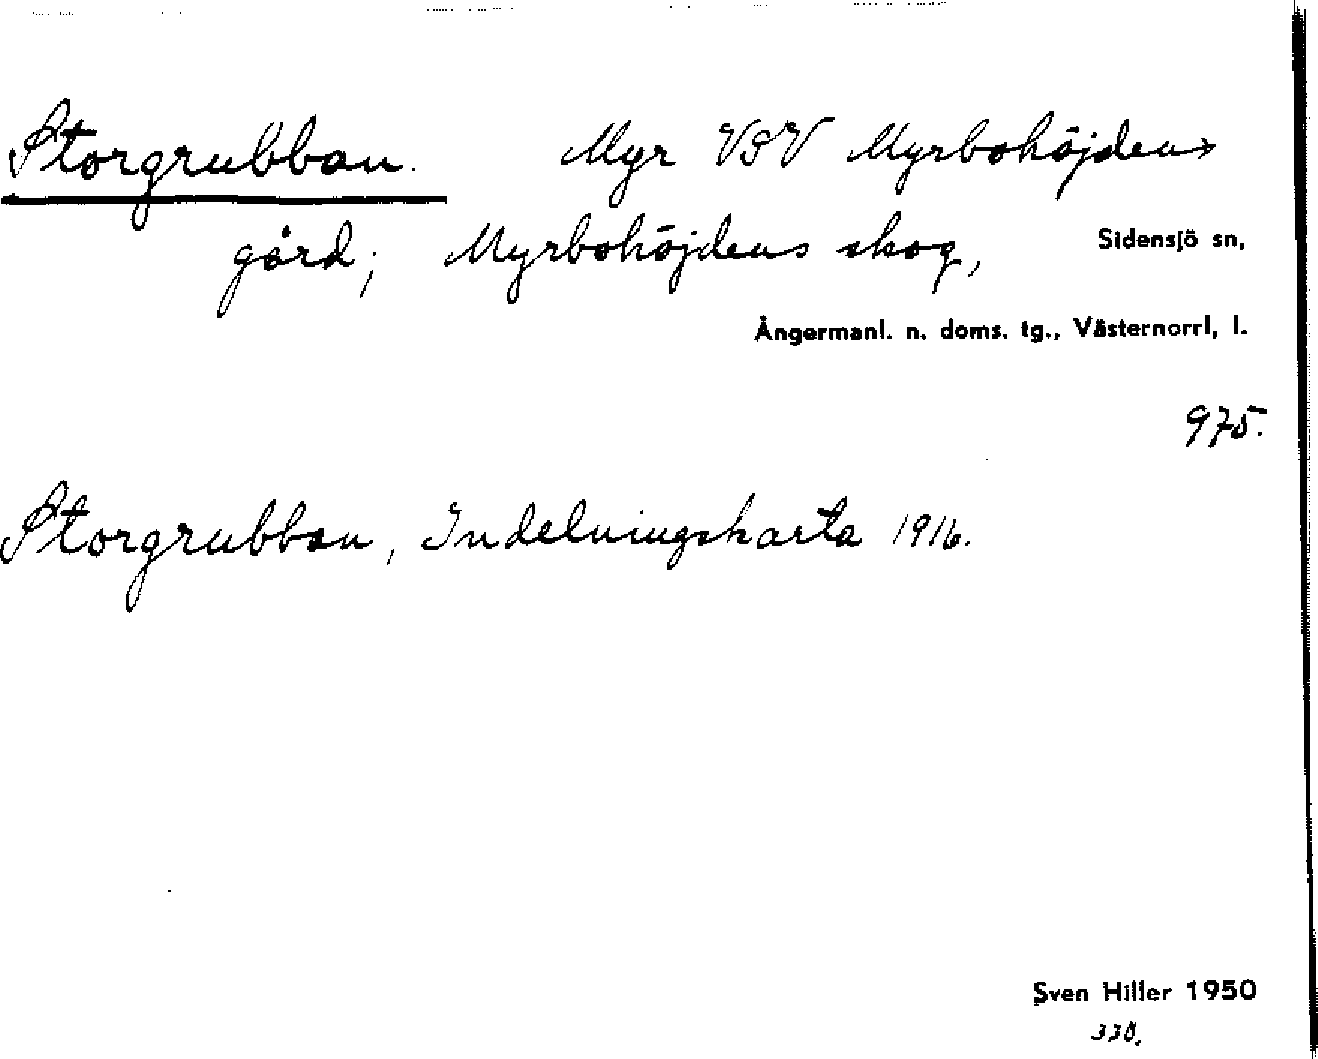 Storgrubban. Myr VSV Myrbohöjdens
gård; Myrbohöjdens skog, Sidensjö sn,
Ångermanl. n. doms. tg., Västernorrl, l.
975.
Storgrubban, Indelningskarta 1916.
Sven Hiller 1950